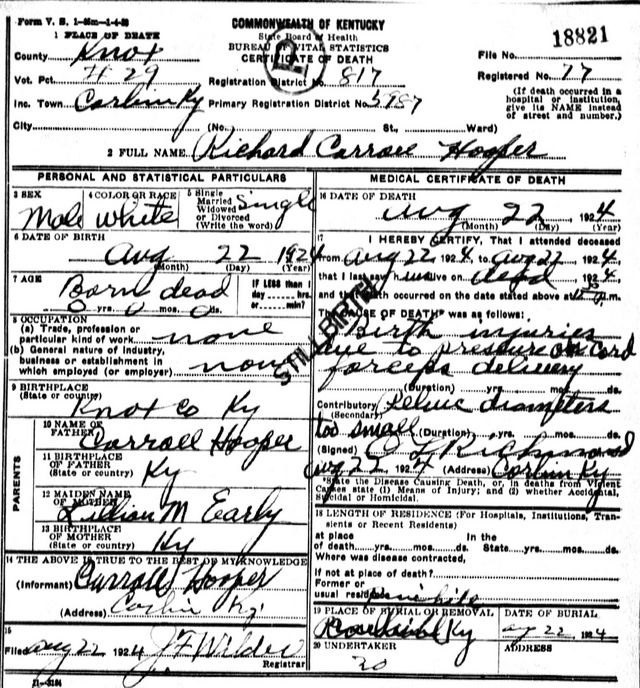 Form V. S. 1-50m-1-4-23
COMMONWEALTH OF KENTUCKY
State Board of Health
BUREAU OF VITAL STATISTICS
CERTIFICATE OF DEATH
1 PLACE OF DEATH
County Knox
File No. 18821
Vot. Pct. 29
Registration District No. 817
Registered No. 77
Inc. Town Corbin Ky
Primary Registration District No. 5987
(If death occurred in a hospital or institution, give its NAME instead of street and number.)
City (No. St., Ward)
2 FULL NAME Richard Carroll Hooper
PERSONAL AND STATISTICAL PARTICULARS
3 SEX Male
4 COLOR OR RACE White
5 Single Married Widowed or Divorced (Write the word) Single
6 DATE OF BIRTH
Aug 22 1924
(Month) (Day) (Year)
7 AGE Born dead
0 yrs. 0 mos. 0 ds.
IF LESS than 1 day hrs. or min.?
8 OCCUPATION
(a) Trade, profession or particular kind of work none
(b) General nature of industry, business or establishment in which employed (or employer) none
9 BIRTHPLACE
(State or country)
Knox Co Ky
PARENTS
10 NAME OF FATHER Carroll Hooper
11 BIRTHPLACE OF FATHER
(State or country) Ky
12 MAIDEN NAME OF MOTHER Lillian M Early
13 BIRTHPLACE OF MOTHER
(State or country) Ky
14 THE ABOVE IS TRUE TO THE BEST OF MY KNOWLEDGE
(Informant) Carroll Hooper
(Address) Corbin Ky
15
Filed Aug 22 1924 J F Wilder
Registrar
11-3184
STILLBIRTH
MEDICAL CERTIFICATE OF DEATH
16 DATE OF DEATH
Aug 22, 1924
(Month) (Day) (Year)
17 I HEREBY CERTIFY, That I attended deceased
from Aug 22 1924, to Aug 22, 1924,
that I last saw him alive on dead, 1924,
and that death occurred on the date stated above at m.
The CAUSE OF DEATH* was as follows:
Birth injuries
due to pressure on cord
forceps delivery
(Duration) yrs. mos. ds.
Contributory Pelvic diameters
(Secondary)
too small (Duration) yrs. mos. ds.
(Signed) O L Richmond
Aug 22, 1924 (Address) Corbin Ky
*State the Disease Causing Death, or, in deaths from Violent Causes state (1) Means of Injury; and (2) whether Accidental, Suicidal or Homicidal.
18 LENGTH OF RESIDENCE (For Hospitals, Institutions, Transients or Recent Residents)
at place of death yrs. mos. ds. In the State yrs. mos. ds.
Where was disease contracted,
If not at place of death?
Former or usual residence
19 PLACE OF BURIAL OR REMOVAL
Ky
DATE OF BURIAL
Aug 22, 1924
20 UNDERTAKER
ADDRESS